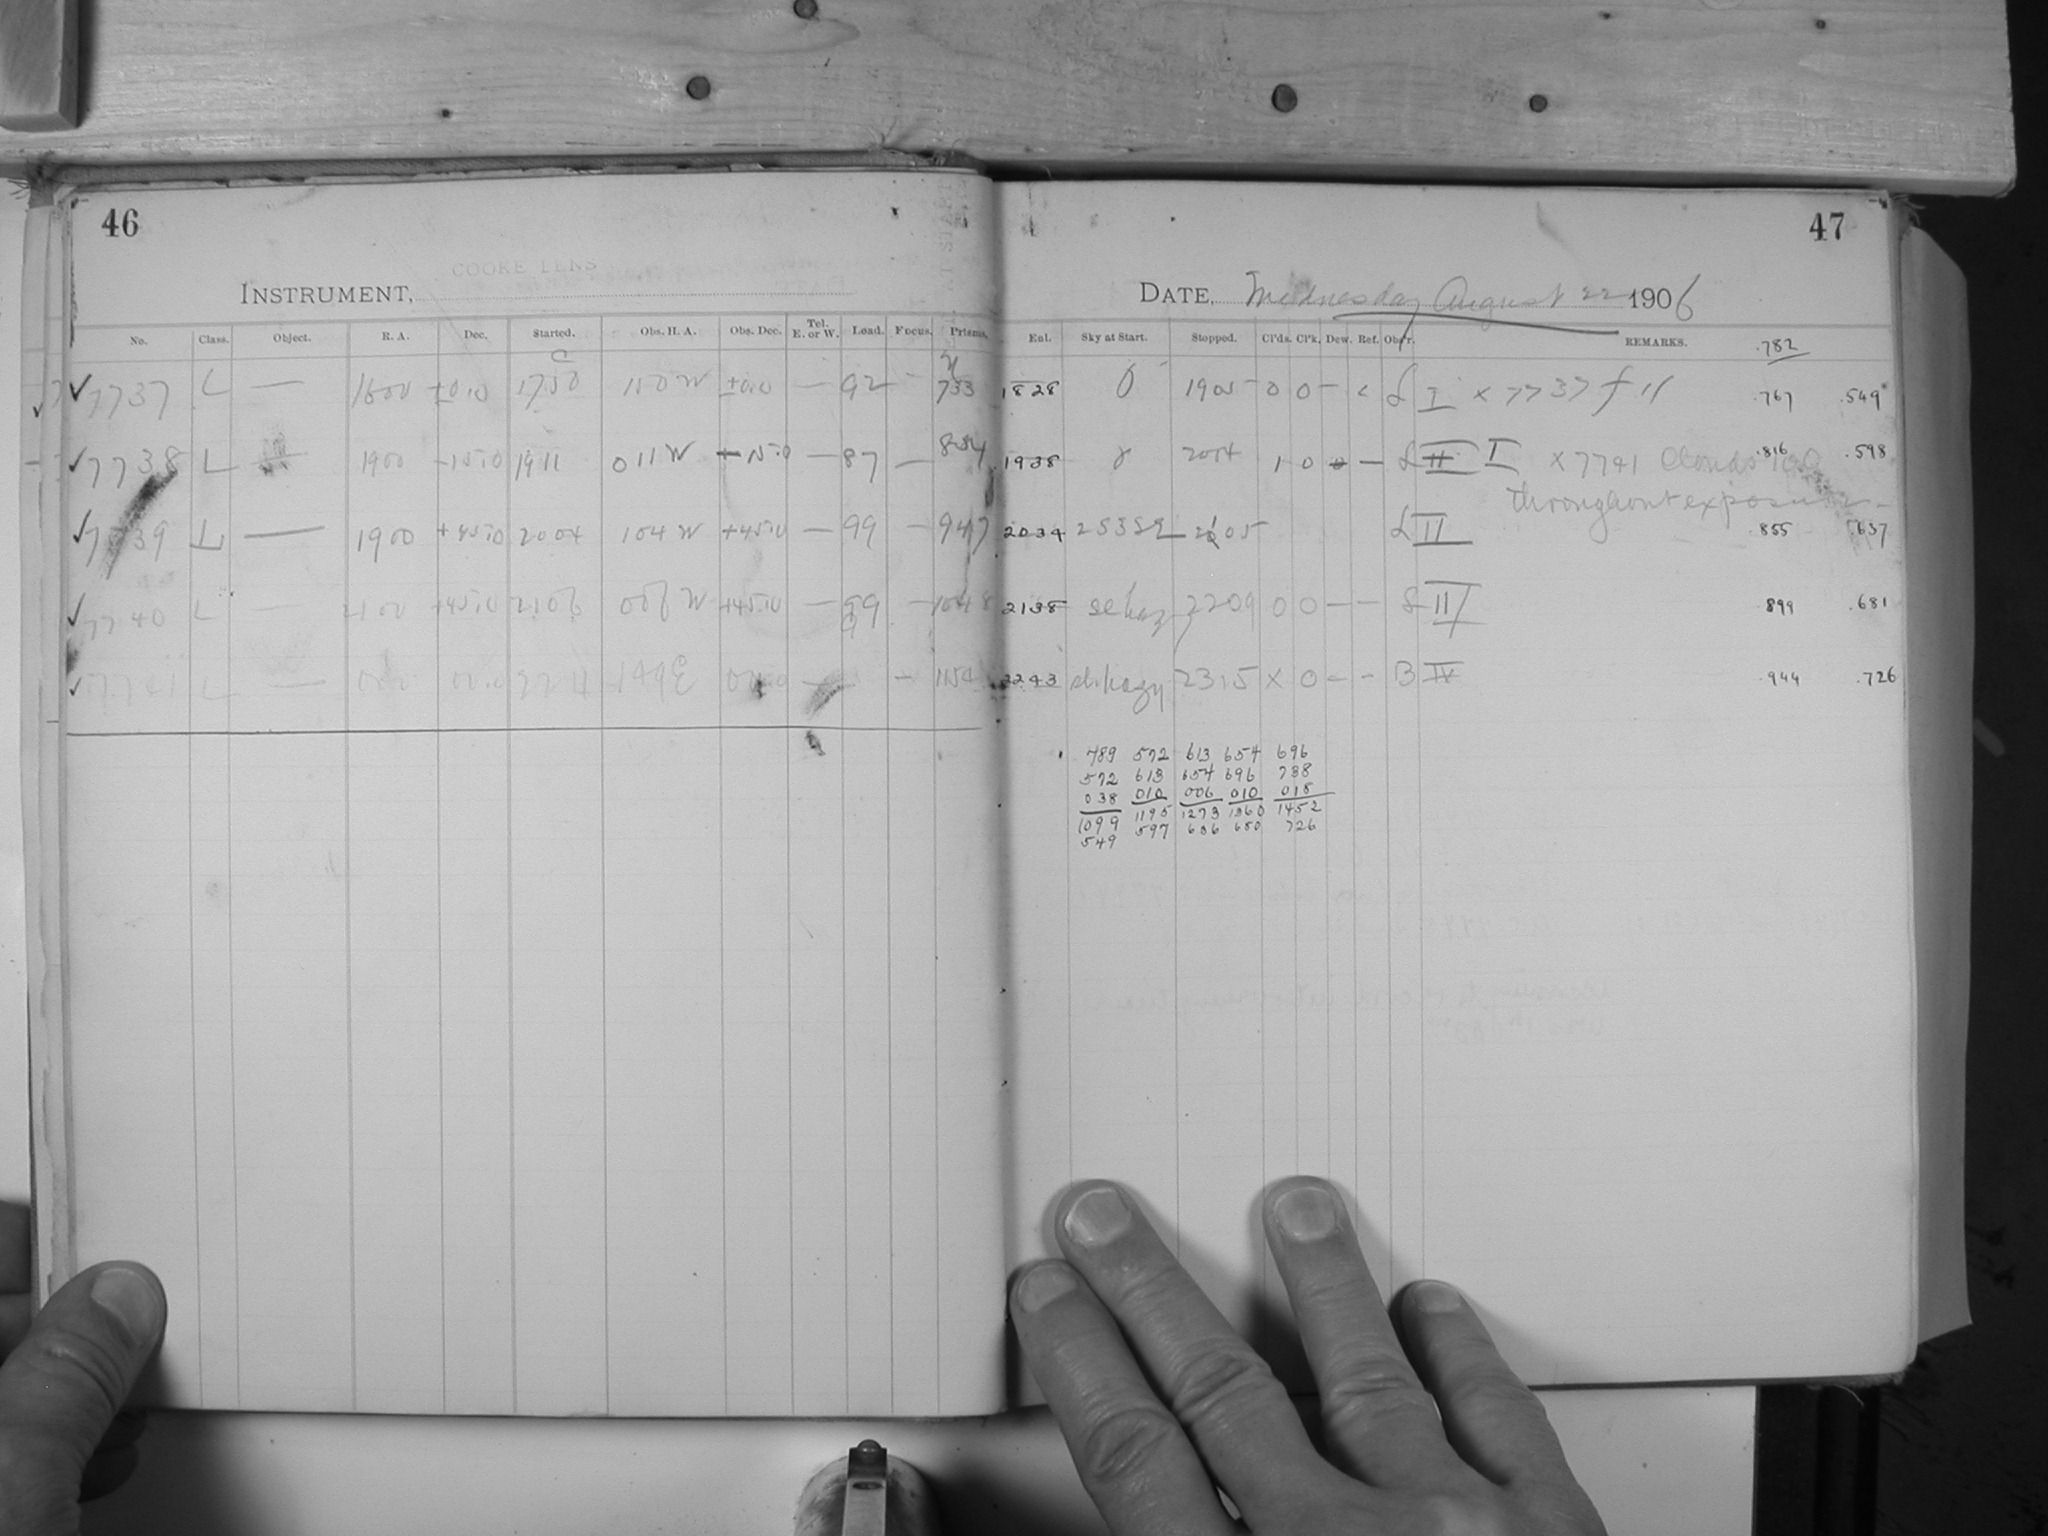 46
COOKE LENS
INSTRUMENT,
No. Class. Object. R. A. Dec. Started. Obs. H. A. Obs. Dec. Tel. E. or W. Load. Focus. Prisms.
✓ 7737 L — 1800 ±0.0 1750 110 W ±0.0 — 92 - 733
✓ 7738 L — 1900 -15.0 1911 011 W -15.0 — 87 — 834
✓ 7739 L — 1900 +45.0 2004 104 W +45.0 — 99 - 947
✓ 7740 L — 2100 +45.0 2106 006 W +45.0 — 99 - 1048
✓ 7741 L — 2211 — - 115
47
DATE, Wednesday August 22 1906
Ent. Sky at Start. Stopped. Cl'ds. Cl'k. Dew. Ref. Obs'r. REMARKS. .782
1828 0 1905 0 0 - L I x 7737 f 11 .767 .549
1938 2004 1 0 0 — L II I x 7741 Clouds .816 .598
throughout exposure
2034 2105 L II .855 .637
2138 2209 0 0 - - S III .899 .681
2243 sl. hazy 2315 x 0 - - B IV .944 .726
789 572 613 654 696
572 613 654 696 738
038 010 006 010 018
1099 1195 1273 1360 1452
549 597 636 680 726